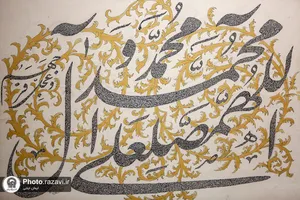 اللهم صل علی محمد و آل محمد
و عجل فرجهم
Photo.razavi.ir